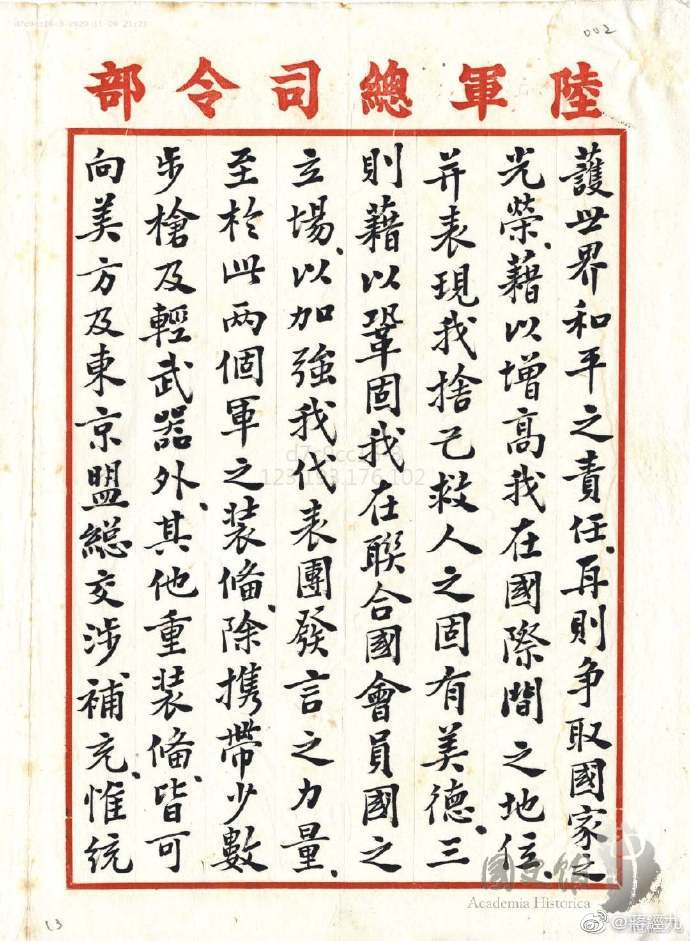 002
陸軍總司令部
護世界和平之責任、再則爭取國家之
光榮、藉以增高我在國際間之地位、
并表現我捨己救人之固有美德、三
則藉以鞏固我在聯合國會員國之
立場、以加強我代表團發言之力量、
至於此两個軍之装備、除携帶少數
步槍及輕武器外、其他重装備、皆可
向美方及東京盟総交涉、補充、惟統
13
國史館
Academia Historica
123.193.176.102